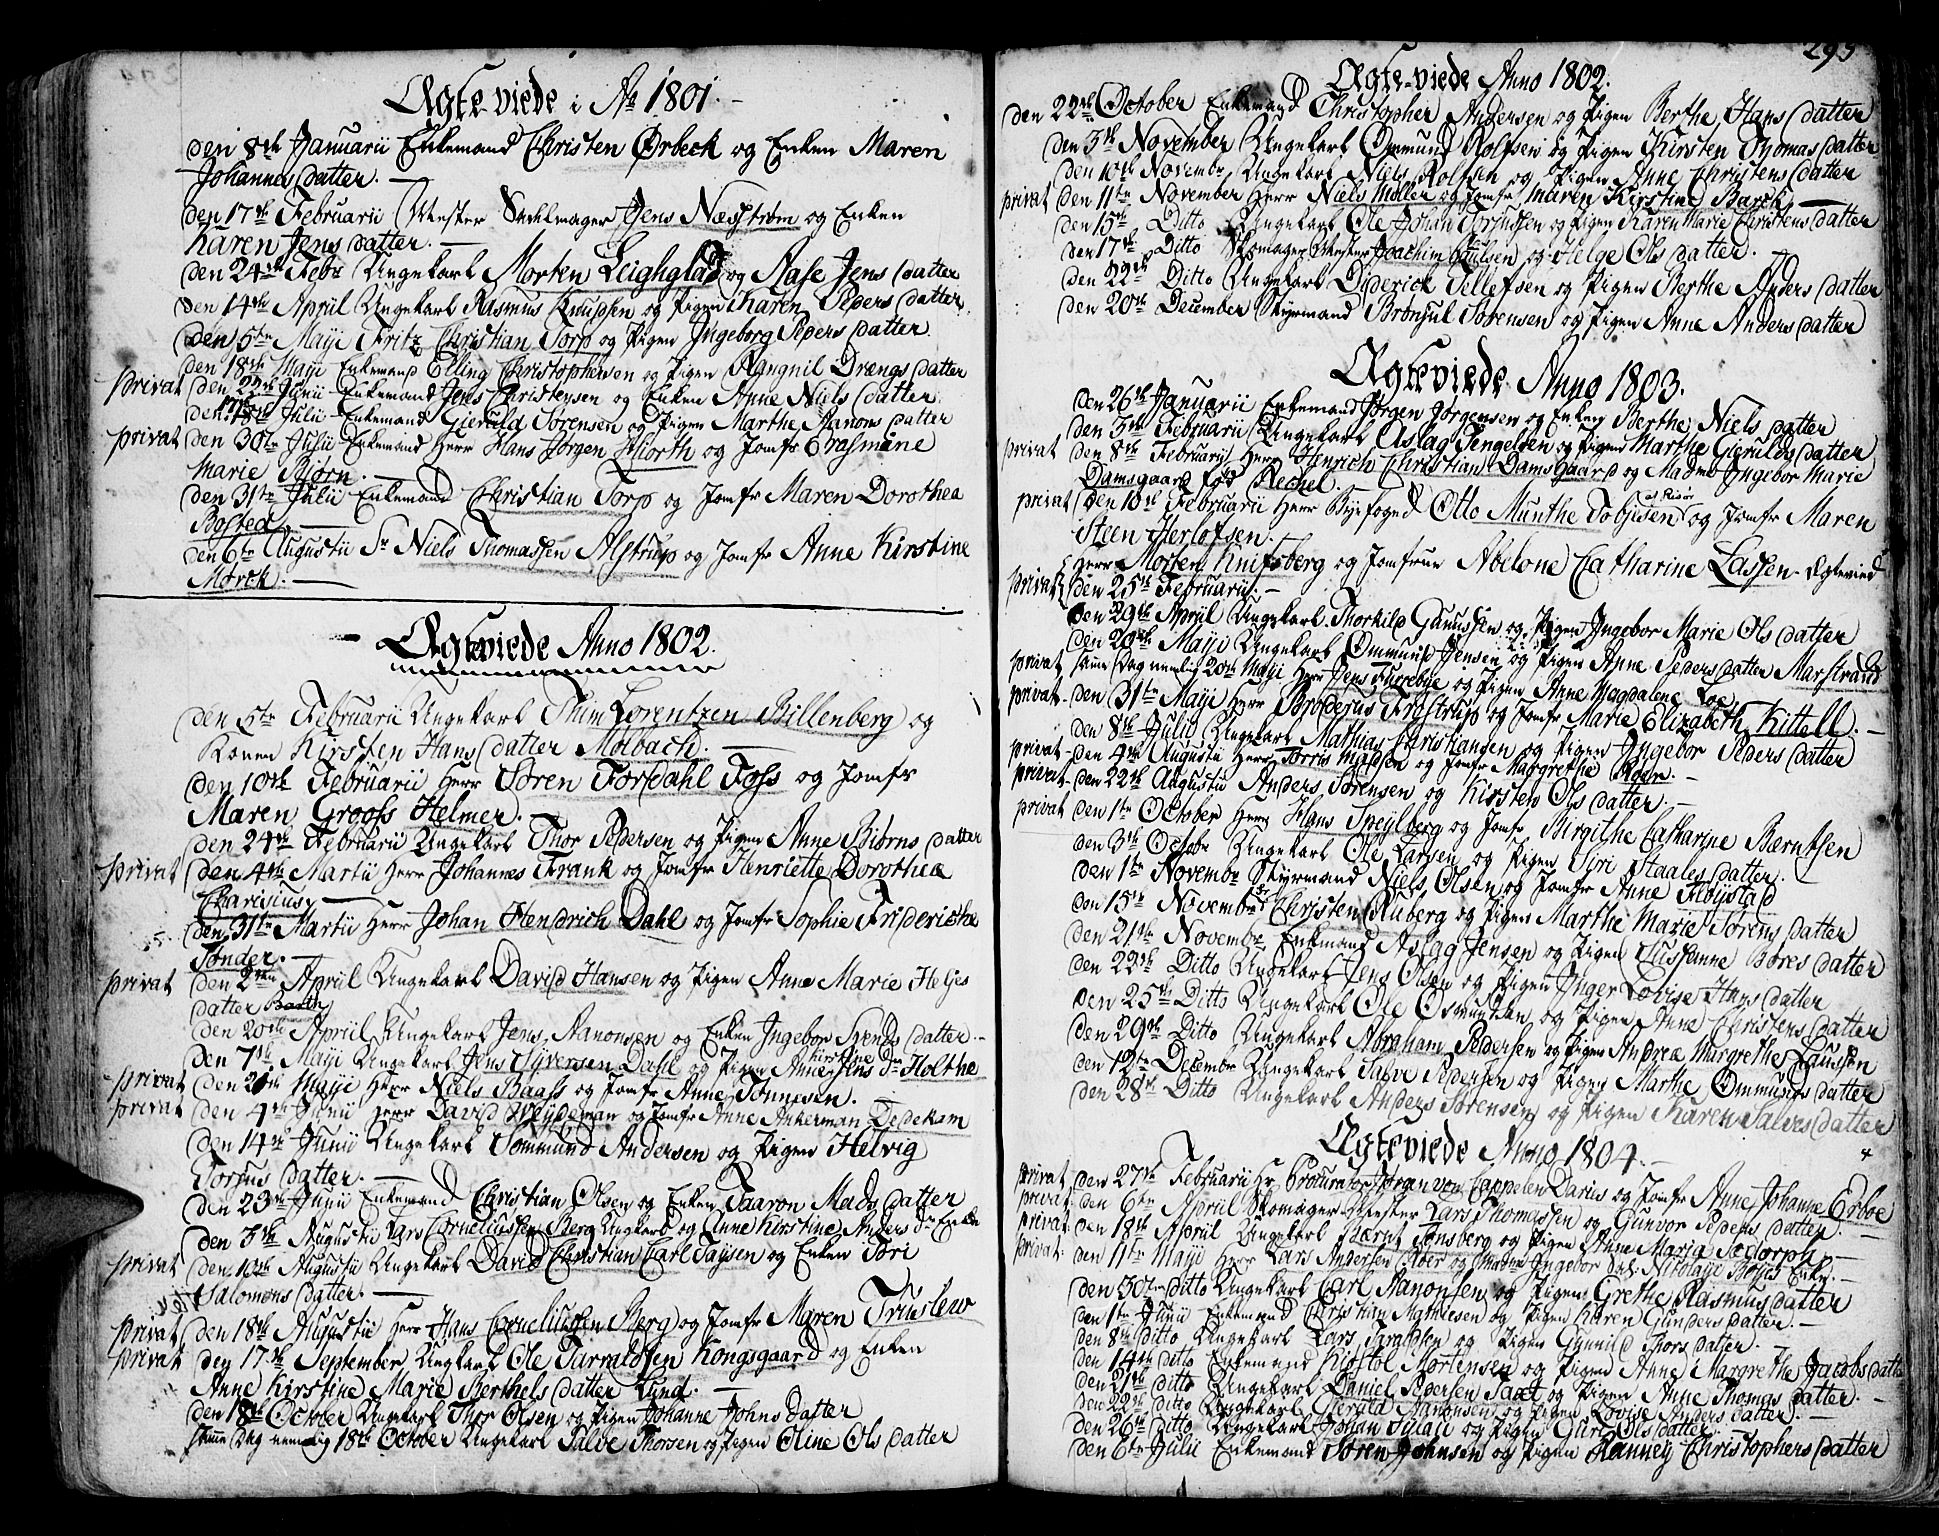 Ægteviede i Ao 1801.
den 8de Januarii Enkemand Christen Ørbeck og Enken Maren
Johannes datter.
den 17de Februarii Mester Sadelmager Jens Næsstrøm og Enken
Karen Jens datter.
den 24de Febr Ungekarl Morten Leighglad og Aase Jens datter
den 14de Apriil Ungekarl Rasmus Knudsen og Pigen Karen Peders datter
den 5te Maji Fritz Christian Torp og Pigen Ingeborg Peders datter
den 18de Maji Enkemand Elling Christophersen og Pigen Rangnil Drængs datter
privat den 22de Junii Enkemand Jens Christensen og Enken Anne Niels datter
den 18de Julii Enkemand Gieruld Sørensen og Pigen Marthe Aanons datter
privat den 30te Julii Enkemand Herr Hans Jørgen Hiorth og Jomfr Erasmine
Marie Biørn.
den 31te Julii Enkemand Christian Torp og Jomfr Maren Dorothea
Bosted.
den 6te Augustii Sr Niels Thomassen Alstrup og Jomfr Anne Kirstine
Mørck.
Ægteviede Anno 1802.
den 5te Februarii Ungekarl Thim Lorentzen Billenberg og
Konen Kirsten Hans datter Molbach.
den 10de Februarii Herr Søren Tordahl Foss og Jomfr
Maren Grooss Helmer.
den 24de Februarii Ungekarl Thor Pedersen og Pigen Anne Biørns datter
privat den 4de Martii Herr Johannes Frank og Jomfr Henriette Dorothea
Charisius
den 31te Martii Herr Johan Hendrich Dahl og Jomfr Sophie Friderica
Tønder.
privat den 2den Apriil Ungekarl David Hansen og Pigen Anne Marie Heljes
datter
den 20de Apriil Ungekarl Jens Aanonsen og Enken Ingebor Svends datter
den 7de Maji Ungekarl Jens Syversen Dahl og Pigen Anne Kirstine Jens Dr Holthe
privat den 20de Maji Herr Niels Baass og Jomfr Anne Tønnesen.
privat den 4de Junii Herr David Weydeman og Jomfr Anne Ankerman Dedekam
den 14de Junii Ungekarl Sommund Andersen og Pigen Helvig
Torjus datter.
den 23de Junii Enkemand Christian Olsen og Enken Taaron Mads datter
den 3de Augustii Lars Corneliussen Berg Ungkarl og Anne Kirstine Anders Dr Enke
privat den 10de Augustii Ungekarl David Christian Carl Taysen og Enken Siri
Salomons datter.
privat den 18de Augustii Herr Hans Corneliussen Berg og Jomfr Maren Truslew
privat den 17de September Ungkarl Ole Tarraldsen Kongsgaard og Enken
Anne Kirstine Marie Berthels datter Lund.
den 18de October Ungekarl Thor Olsen og Pigen Johanne Johns datter
samme dag nemlig 18de October Ungekarl Salve Thorsen og Pigen Oline Ols datter
295
Ægteviede Anno 1802.
den 22de October Enkemand Christopher Andersen og Pigen Berthe Hans datter
den 3de November Ungekarl Ommund Rolfsen og Pigen Kirsten Thomas datter
den 10de Novembr Ungekarl Niels Rolfsen og Pigen Anne Christens datter
privat den 11te November Herr Niels Møller og Jomfr Maren Kirstine Barck
den 15de Ditto Ungekarl Ole Johan Torjussen og Pigen Karen Marie Christens datter
den 17de Ditto Skomager Mester Joachim Poulsen og Helge Ols datter.
den 22de Ditto Ungekarl Dyderick Tellefsen og Pigen Berthe Anders datter
den 20de December Styrmand Brønjul Sørensen og Pigen Anne Anders datter
Ægteviede Anno 1803.
den 26de Januarii Enkemand Jørgen Jørgensen og Enken Berthe Niels datter
den 3de Februarii Ungekarl Aslag Tengelsen og Pigen Marthe Gierulds datter
privat den 8de Februarii Herr Henrich Christian Damsgaard og Madme Ingebor Marie
Damsgaard fød Rechel.
privat den 10de Februarii Herr Byefoged Otto Munthe Tobjesen og Jomfr Maren
Steen Herlofsen.
Herr Morten Knifsberg og Jomfrue Abelone Catharine Lassen Ægteviede
privat den 25de Februarii.
den 29de Apriil Ungekarl Thorkild Gunussen og Pigen Ingebor Marie Ols datter
den 20de Maji Ungekarl Ommund Jensen og Pigen Anne Peders datter Marstrand
privat samme Dag nemlig 20de Maji Herr Jens Furreboe og Pigen Anne Magdalene Loe
privat den 31te Maji Herr Broderus Frostrup og Jomfr Marie Elizabeth Kittell.
den 8de Julii Ungekarl Mathias Christiansen og Pigen Ingebor Peders datter
privat den 4de Augustii Herr Torris Madsen og Jomfr Margrethe Roen.
privat den 22de Augustii Anders Sørensen og Kirsten Ols datter.
privat den 1te October Herr Hans Speylberg og Jomfr Birgithe Catharine Bærntsen
den 3de Octobr Ungekarl Ole Larsen og Pigen Siri Staales datter.
den 1te Novembr Styrmand Niels Olsen og Jomfr Anne Høystad
den 15de Novembr Sr Christen Ruberg og Pigen Marthe Marie Sørens datter
den 21de Novembr Enkemand Aslag Jensen og Pigen Susanne Bores datter
den 22de Ditto Ungekarl Jens Olsen og Pigen Inger Lovise Hans datter
den 25de Ditto Ungekarl Ole Osmundsen og Pigen Anne Christens datter
den 29de Ditto Ungekarl Abraham Pedersen og Pigen Andrea Margrethe Lauson
den 12te Decembr Ungekarl Salve Pedersen og Pigen Marthe Ommunds datter
den 28de Ditto Ungekarl Anders Sørensen og Pigen Karen Salves datter
Ægteviede Anno 1804.
privat den 27de Februarii Hr Procurator Jørgen von Cappelen Darius og Jomfr Anne Johanne Erboe
privat den 6te Apriil Skomager Mester Lars Thomassen og Gunvor Peders datter.
privat den 18de Apriil Ungekarl Bærnt Tønsberg og Pigen Anne Maria Sædorph
privat den 11te Maji Herr Lars Andersen Roer og Madme Ingebor Sal. Nikolaji Boyes Enke.
den 30te ditto Ungekarl Carl Aanonsen og Pigen Grethe Rasmus datter
den 1te Junii Enkemand Christian Mathiesen og Pigen Karen Gunders datter.
den 8de ditto Ungekarl Lars Taraldsen og Pigen Gunnild Thors datter.
den 14de ditto Enkemand Kistol Mortensen og Pigen Anne Margrethe Jacobs datter
den 21de ditto Ungekarl Daniel Pedersen Saxt og Pigen Anne Thomas datter.
den 22de ditto Ungekarl Gerald Aanonsen og Pigen Lovise Anders datter.
den 26de ditto Ungekarl Johan Isaac og Pigen Guri Ols datter
den 6te Julii Enkemand Søren Johnsen og Pigen Ranney Christophers datter